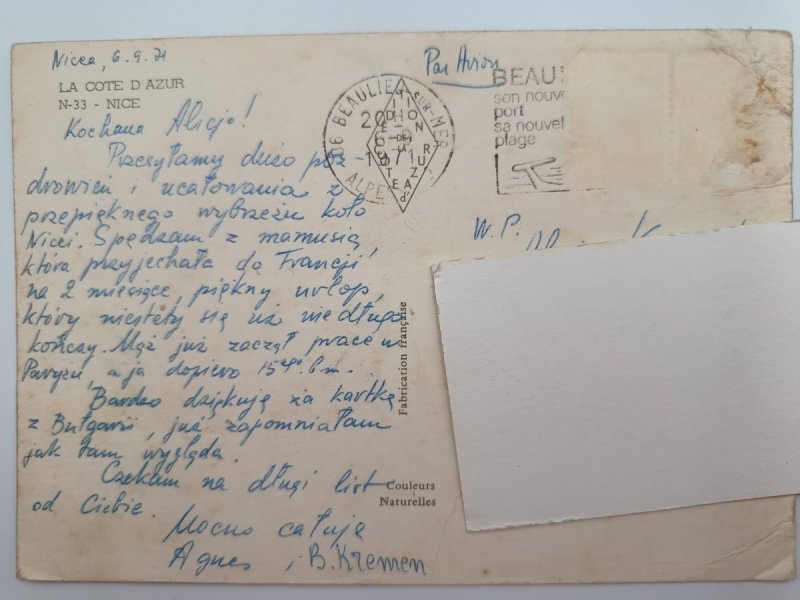 Nicea, 6.9.71
LA COTE D'AZUR
N-33 - NICE
Kochana Alicjo!
Przesyłamy dużo poz-
drowień i ucałowania z
przepięknego wybrzeżu koło
Nicei. Spędzam z mamusią,
która przyjechała do Francji
na 2 miesiące, piękny urlop,
który niestety się już niedługo
kończy. Mąż już zaczął pracę w
Paryżu, a ja dopiero 15ego b.m.
Bardzo dziękuję za kartkę
z Bułgarii, już zapomniałam
jak tam wygląda.
Czekam na długi list
od Ciebie.
Mocno całuję
Agnes i B. Kremen
Par Avion
06 BEAULIEU-SUR-MER
20H
1971
ALPES
COTE D'AZUR
BEAU
son nouve
port
sa nouvel
plage
W.P.
Fabrication française
Couleurs
Naturelles